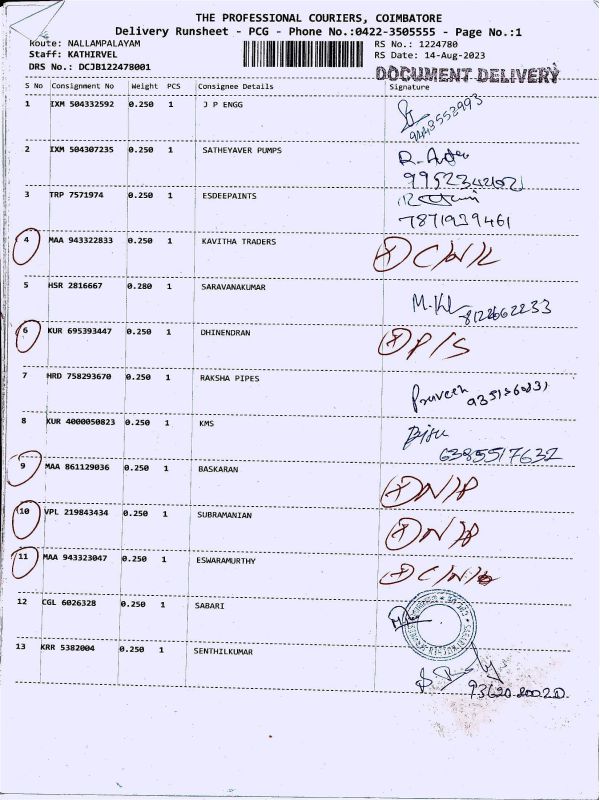 THE PROFESSIONAL COURIERS, COIMBATORE
Delivery Runsheet - PCG - Phone No.:0422-3505555 - Page No.:1
Route: NALLAMPALAYAM RS No.: 1224780
Staff: KATHIRVEL RS Date: 14-Aug-2023
DRS No.: DCJB122478001
DOCUMENT DELIVERY
S No Consignment No Weight PCS Consignee Details Signature
1 IXM 504332592 0.250 1 J P ENGG
9443552993
2 IXM 504307235 0.250 1 SATHEYAVER PUMPS
3 TRP 7571974 0.250 1 ESDEEPAINTS
7871939461
4 MAA 943322833 0.250 1 KAVITHA TRADERS C/N/L
5 HSR 2816667 0.280 1 SARAVANAKUMAR
8122662233
6 KUR 695393447 0.250 1 DHINENDRAN P/S
7 HRD 758293670 0.250 1 RAKSHA PIPES Praveen
8 KUR 4000050823 0.250 1 KMS Biju
6385517632
9 MAA 861129036 0.250 1 BASKARAN N/P
10 VPL 219843434 0.250 1 SUBRAMANIAN N/P
11 MAA 943323047 0.250 1 ESWARAMURTHY
12 CGL 6026328 0.250 1 SABARI
13 KRR 5382004 0.250 1 SENTHILKUMAR